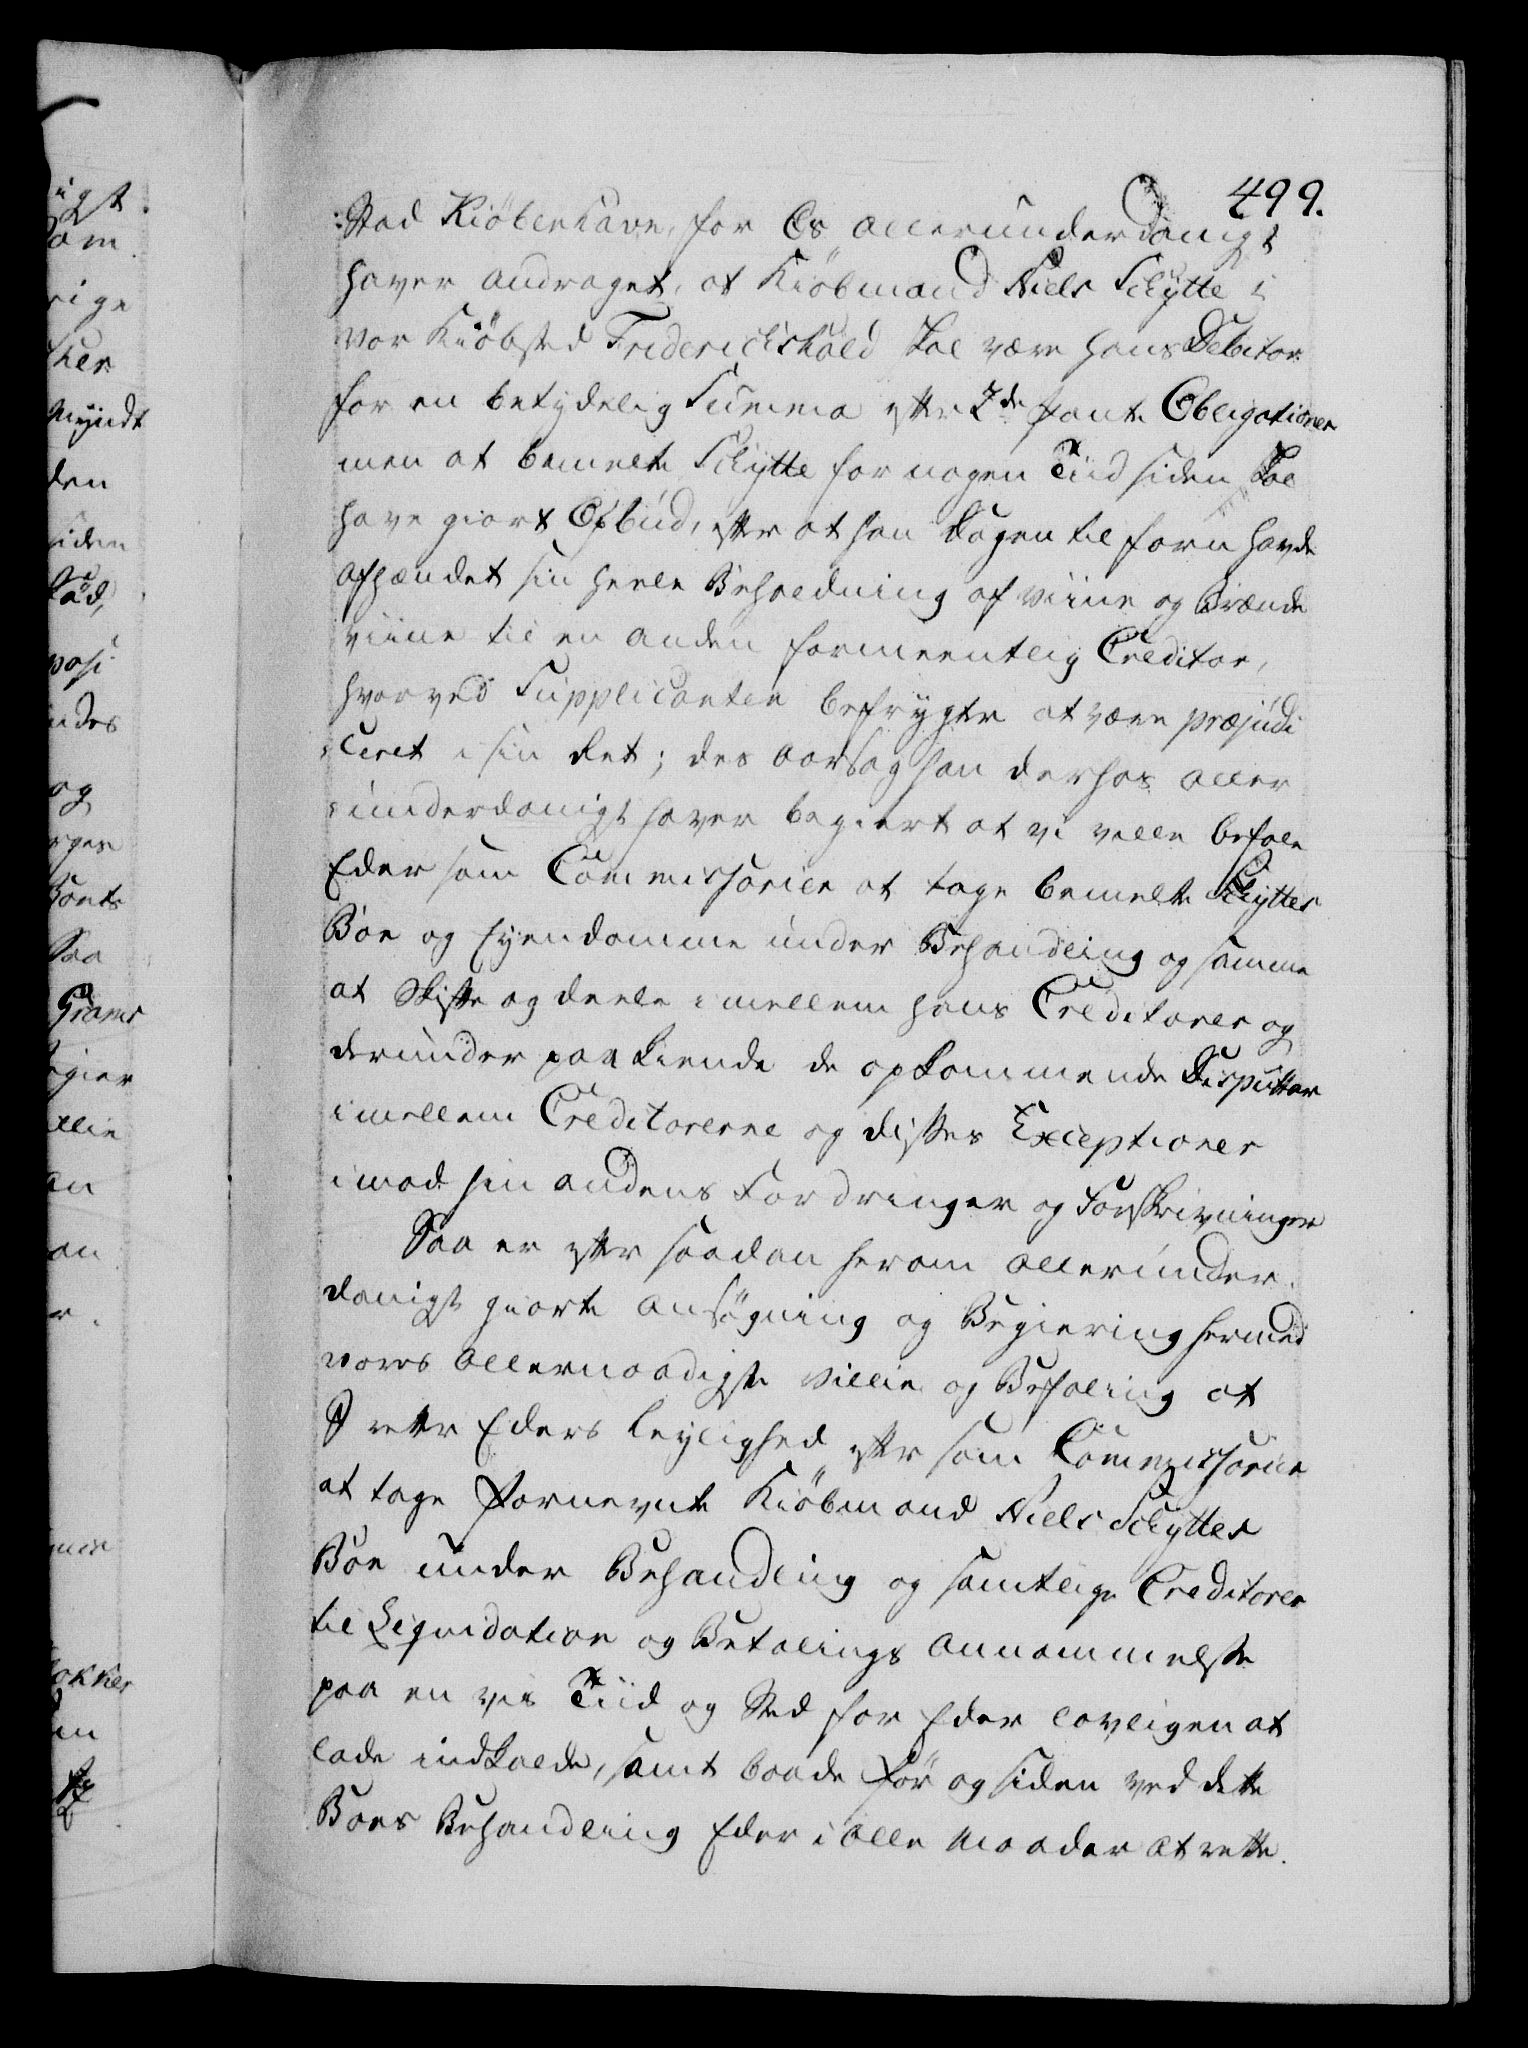 499.
:Stad Kiöbenhavn, for Os allerunderdanigt
haver andraget, at Kiöbmand Niels Schytte i
vor Kiöbsted Friderichshald skal være hans Debitor
for en betydelig Summa efter 2de Pante Obligationer
men at bemelte Schytte for nogen Tiid siden skal
have giort Opbud, efter at han Dagen til forn havde
afhændet sin heele Beholdning af Viine og Brænde
viine til en anden formeentlig Creditor,
hvorved Supplicanten befrygter at være præjudi
:ceret i sin Ret; des Aarsag han derhos aller
:underdanigst haver begiert at vi ville befale
Eder som Commissarier at tage bemelte Schyttes
Boe og Eyendomme under Behandling og samme
at skifte og deele imellem hans Creditorer og
derunder paakiende de opkommende Disputter
imellem Creditorerne og disses Exceptioner
imod hin andens Fordringer og Forskrivninger
Saa er efter saadan herom allerunder.
danigst giorte Ansøgning og Begiering hermed
vores allernaadigste Villie og Befaling at
I retter Eders Leylighed efter som Commissarier
at tage fornevnte Kiöbmand Niels Schyttes
Boe under Behandling og samtlige Creditorer
til Liqvidation og Betalings Annammelse
paa en vis Tiid og Sted for Eder lovligen at
lade indkalde, samt baade för og siden ved dette
Boes Behandling Eder i alle Maader at rette.